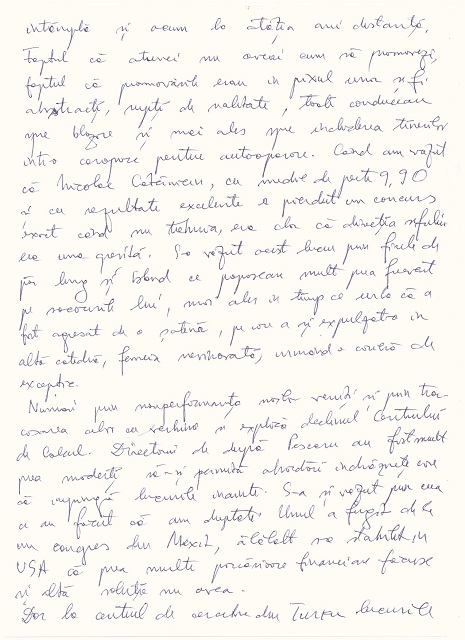 întâmplă și acum la atâția ani distanță.
Faptul că atunci nu aveai cum să promovezi,
faptul că promovările erau în pixul unui șef
abstracți, rupți de realitate, toate conduceau
spre blazare și mai ales spre închiderea tinerilor
într-o carapace pentru autoapărare. Când am văzut
că Nicolae Cătănicin, cu medie de peste 9,90
și cu rezultate excelente a pierdut un concurs
exact când nu trebuia, era clar că direcția șefului
era una greșită. S-a văzut acest lucru prin firele de
păr lung și blond ce poposeau mult prea frecvent
pe sacourile lui, mai ales în timp ce urla că a
fost agresat de o șatenă, pe care a și expulzat-o în
altă catedră, femeia nevinovată, urmând o carieră de
excepție.
Numai prin nonperformanța noilor veniți și prin tra-
casarea celor cu vechime se explică declinul Centrului
de Calcul. Directorii de după Pescaru au fost mult
prea modești să-și permită abordări îndrăznețe care
să împingă lucrurile înainte. S-a și văzut prin ceea
ce au făcut că am dreptate. Unul a fugit de la
un congres din Mexic, celălalt s-a stabilit în
USA că prea multe financiare făcuse
și altă soluție nu avea.
Dar la centrul de cercetare din Turnu lucrurile